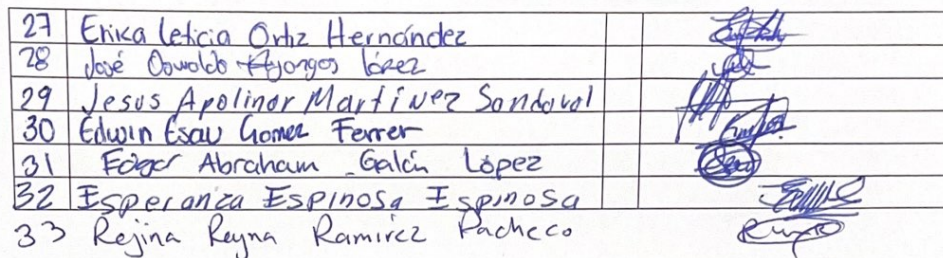 27 Erika Leticia Ortiz Hernández
28 José Oswaldo López
29 Jesus Apolinar Martinez Sandoval
30 Edwin Esau Gomez Ferrer
31 Edgar Abraham Galán López
32 Esperanza Espinosa Espinosa
33 Rejina Reyna Ramirez Pacheco